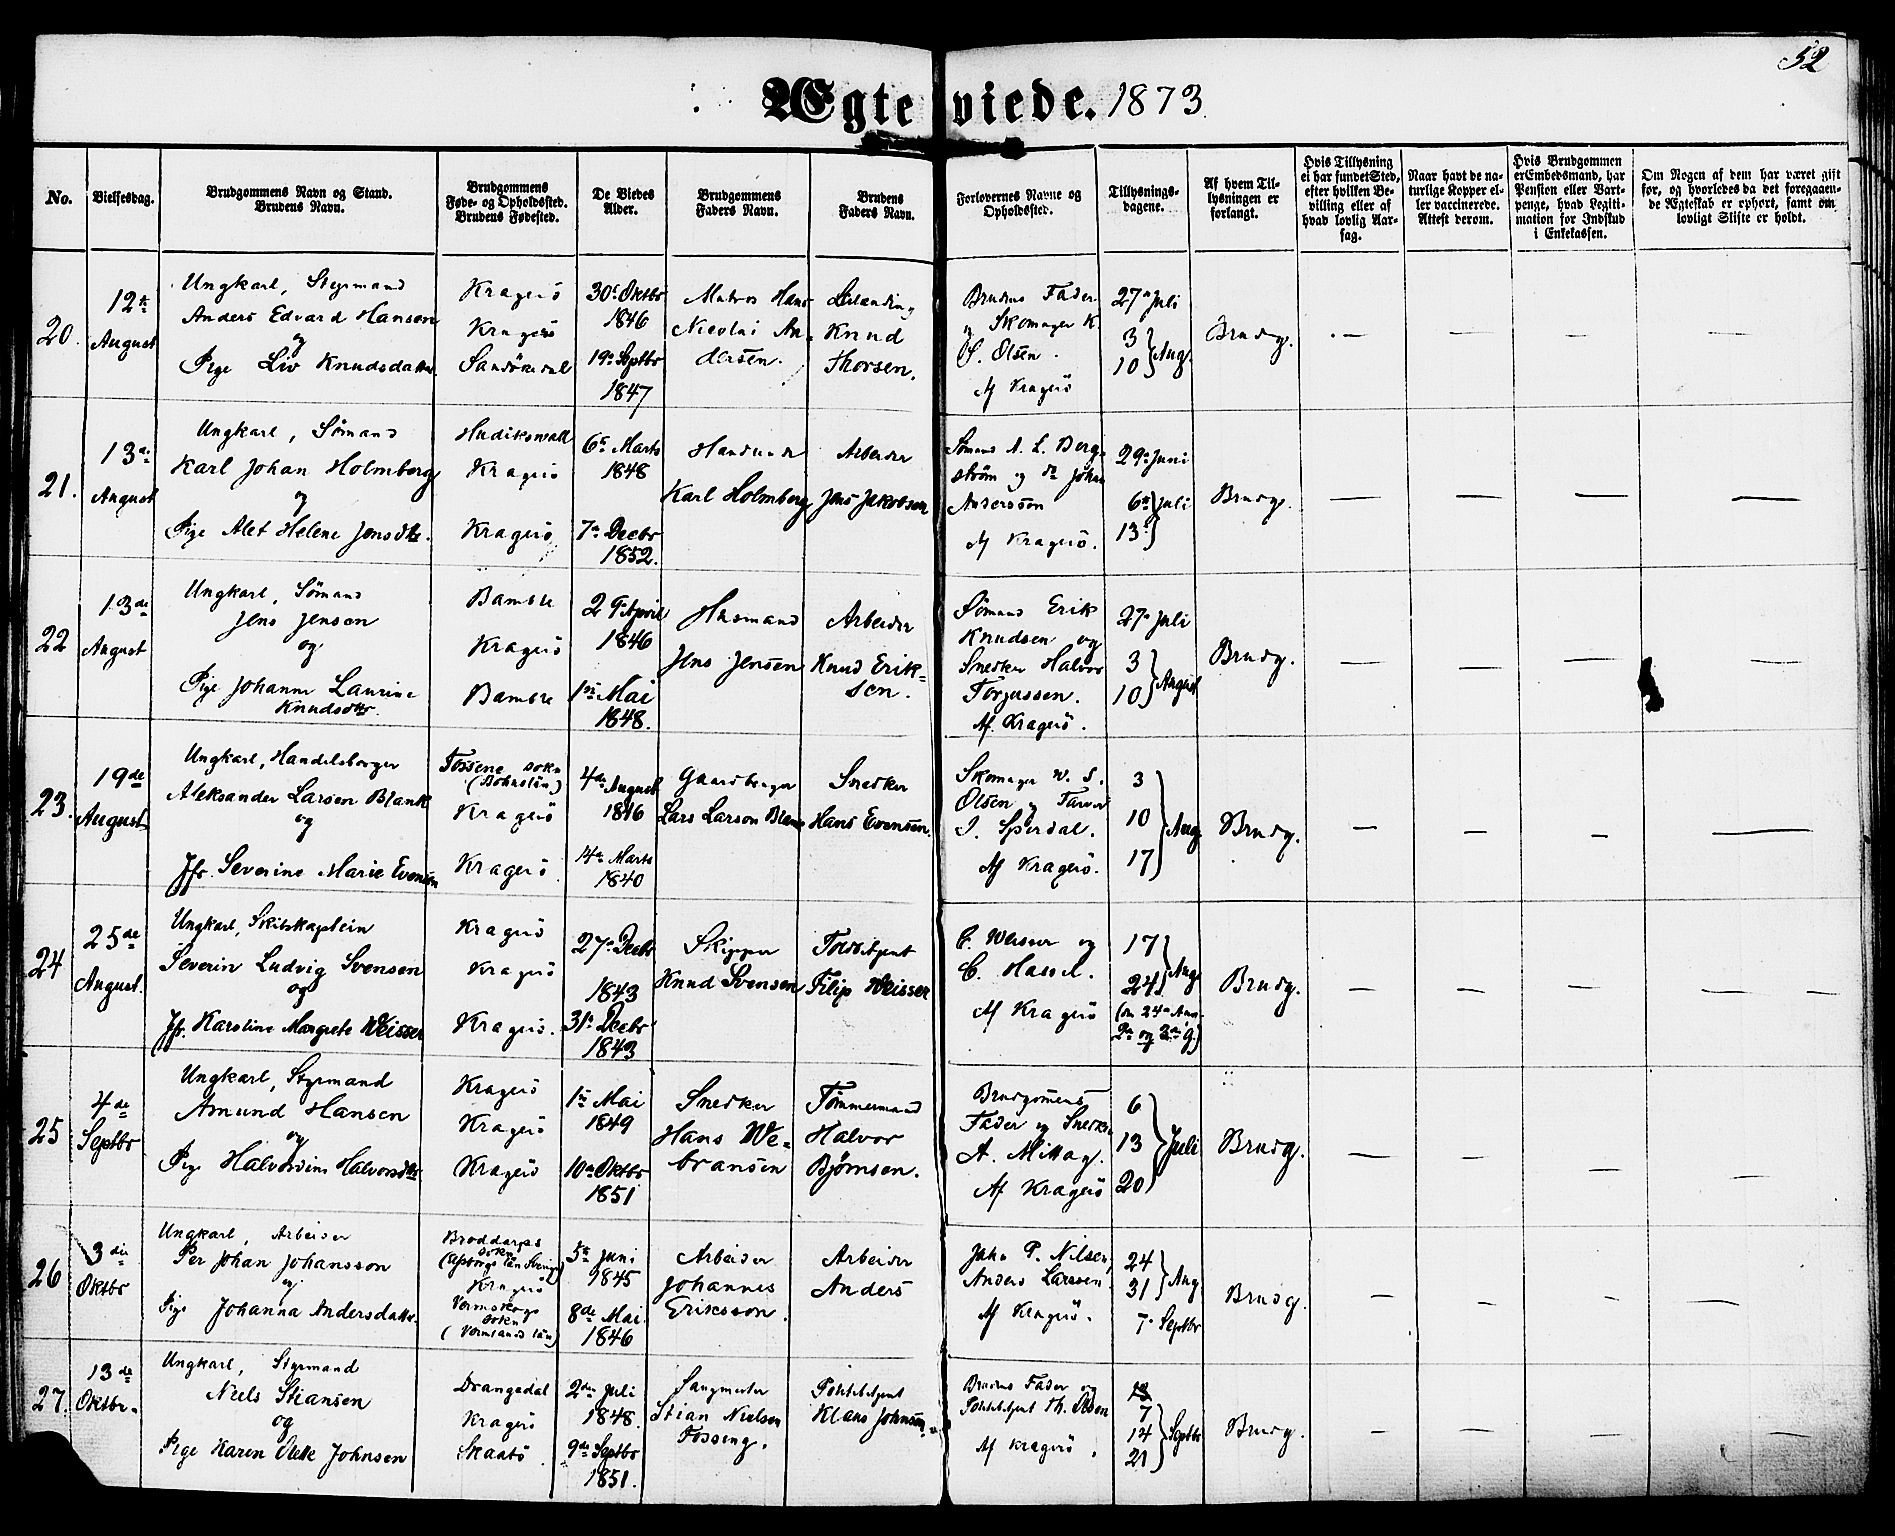 52
Ægteviede. 1873.
No.
Vielsesdag.
Brudgommens Navn og Stand.
Brudens Navn.
Brudgommens
Føde- og Opholdssted.
Brudens Fødested.
De Viedes
Alder.
Brudgommens
Faders Navn.
Brudens
Faders Navn.
Forlovernes Navne og
Opholdssted.
Tillysnings-
dagene.
Af hvem Til-
lysningen er
forlangt.
Hvis Tillysning
ei har fundet Sted,
efter hvilken Be-
villing eller af
hvad lovlig Aar-
sag.
Naar havt de na-
turlige Kopper el-
ler vaccinerede.
Attest derom.
Hvis Brudgommen
er Embedsmand, har
Pension eller Vart-
penge, hvad Legiti-
mation for Indskud
i Enkekassen.
Om Nogen af dem har været gift
før, og hvorledes da det foregaaen-
de Ægteskab er ophørt, samt om
lovligt Skifte er holdt.
20.
12te
August
Ungkarl, Styrmand
Anders Edvard Hansen
og
Pige Liv Knudsdatter
Kragerö
Kragerö
Sandökedal
30te Oktbr
1846
19de Septbr
1847
Matros Hans
Nicolai An-
dersen.
Knud
Thorsen.
Brudens Fader
og Skomager K.
S. Olsen.
Af Kragerö
27de Juli
3
10 } Aug.
Brudg.
21.
13de
August
Ungkarl, Sømand
Karl Johan Holmberg
og
Pige Alet Helene Jensdtr.
Hudikswall
Kragerö
Kragerö
6te Marts
1848
7de Decbr
1852.
Karl Holmberg
Arbeider
Jens Jakobsen
Sømand A. L. Berg-
ström og do Johan
Andersson
Af Kragerö.
29de Juni
6te } Juli
13de
Brudg.
22
13de
August
Ungkarl, Sømand
Jens Jensen
og
Pige Johanne Laurine
Knudsdtr.
Bamble
Kragerö
Bamble
29 April
1846
1ste Mai
1848.
Husmand
Jens Jensen
Arbeider
Knud Erik-
sen.
Sømand Erik
Knudsen og
Snedker Halvor
Torjussen.
Af Kragerö.
27de Juli
3
10 } August
Brudg.
23.
19de
August
Ungkarl, Handelsborger
Aleksander Larsen Blank
og
Jfr. Severine Marie Evensen
Tossene sokn
(Bohuslän)
Kragerö
Kragerö
4de August
1846
14de Marts
1840
Gaardbruger
Lars Larson Blank
Snedker
Hans Evensen.
Skomager W. S.
Olsen og Farver
I. Sperdal.
Af Kragerö.
3
10 } Aug
17
Brudg.
24
25de
August.
Ungkarl, Skibskaptein
Severin Ludvig Svensen
og
Jfr. Karoline Margrete Weisser
Kragerö
Kragerö
Kragerö.
27de Decbr
1843
31te Decbr
1843
Skipper
Knud Svensen
Toldbetjent
Filip Weisser
C. Weisser og
C. Hassel.
Af Kragerö
17
24 } Aug
(den 24de Aug.
2den og 3die G.)
Brudg.
25
4de
Septbr
Ungkarl, Styrmand
Amund Hansen
og
Pige Halvordine Halvorsdtr
Kragerö
Kragerö
Kragerö
1ste Mai
1849
10de Oktbr
1851
Snedker
Hans We-
bransen
Tömmermand
Halvor
Björnsen.
Brudgomens
Fader og Snedker
A. Mittag.
Af Kragerö
6
13 } Juli
20
Brudg.
26
3die
Oktbr
Ungkarl, Arbeider
Per Johan Johansson
og
Pige Johanna Andersdatter.
Broddarps
sokn
Kragerö
Vermskogs
sokn
(Vermlands län)
5te Juni
1845
8de Mai
1846
Arbeider
Johannes
Eriksson.
Arbeider
Anders
John P. Nilsen,
Anders Larsen
Af Kragerö.
24
31 } Aug
7de Septbr
Brudg.
27.
13de
Oktbr.
Ungkarl, Styrmand
Niels Stiansen
og
Pige Karen Olette Johnsen
Drangedal
Kragerö
Skaatö
2den Juli
1848.
9de Septbr
1851.
Sangmester
Stian Nielsen
Fosseng.
Politibetjent
Klaus Johnsen
Brudens Fader og
Politibetjent Th. Olsen
Af Kragerö.
7
14 } Septbr
21
Brudg.